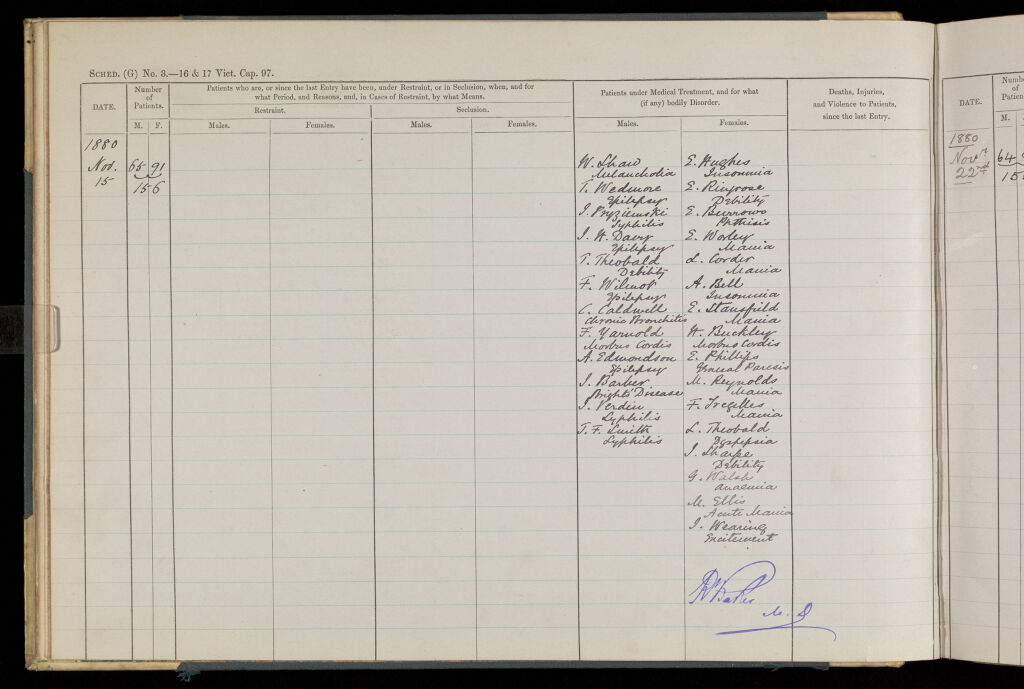 SCHED. (G) No. 3.—16 & 17 Vict. Cap. 97.
DATE.
Number of Patients.
M. F.
Patients who are, or since the last Entry have been, under Restraint, or in Seclusion, when, and for
what Period, and Reasons, and, in Cases of Restraint, by what Means.
Restraint.
Seclusion.
Males.
Females.
Males.
Females.
Patients under Medical Treatment, and for what
(if any) bodily Disorder.
Males.
Females.
Deaths, Injuries,
and Violence to Patients,
since the last Entry.
1880
Nov. 65 91
15 156
W. Shaw
Melancholia
T. Wedmore
Epilepsy
I. Pryziemski
Syphilis
I. H. Davy
Epilepsy
T. Theobald
Debility
F. Wilmot
Epilepsy
C. Caldwell
Chronic Bronchitis
F. Yarnold
Morbus Cordis
A. Edmondson
Epilepsy
I. Barber
Brights Disease
I. Verdin
Syphilis
T. F. Smith
Syphilis
E. Hughes
Insomnia
E. Ringrose
Debility
E. Burrows
Phthisis
E. Worley
Mania
L. Corder
Mania
A. Bell
Insomnia
E. Stansfield
Mania
H. Buckley
Morbus Cordis
E. Phillips
General Paresis
M. Reynolds
Mania
F. Tregelles
Mania
L. Theobald
Dyspepsia
I. Sharpe
Debility
G. Walsh
Anaemia
M. Ellis
Acute Mania
I. Wearing
Excitement
R Baker
M. D
DATE.
M.
1880
Nov 64
22nd